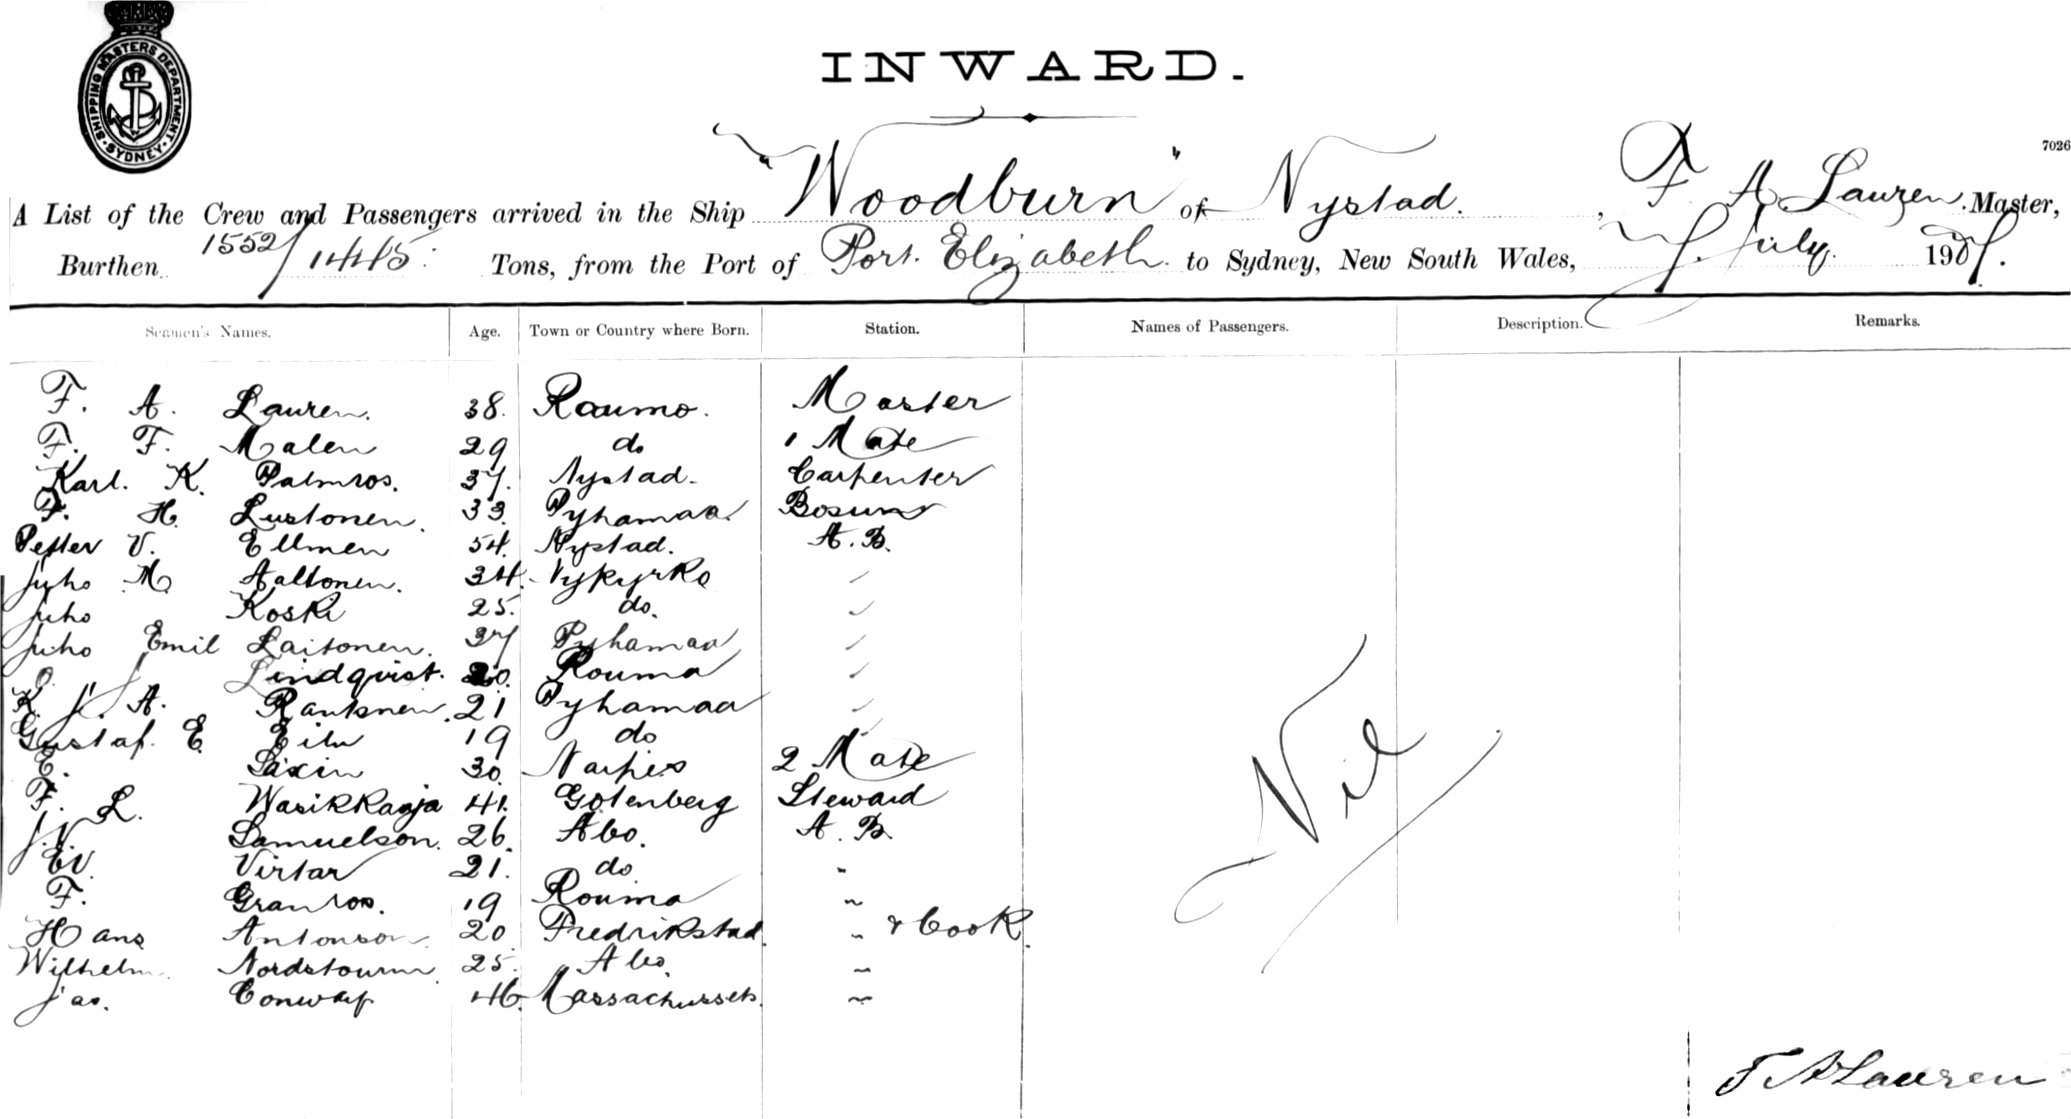 SHIPPING MASTERS DEPARTMENT
SYDNEY
INWARD.
7026
A List of the Crew and Passengers arrived in the Ship "Woodburn" of Nystad. , F A Lauren. Master,
Burthen 1552/1445 Tons, from the Port of Port. Elizabeth. to Sydney, New South Wales, July. 190
Seamen's Names. Age. Town or Country where Born. Station. Names of Passengers. Description. Remarks.
F. A. Lauren. 38. Raumo. Master
F. F. Malen 29 do 1 Mate
Karl. K. Palmros. 37. Nystad. Carpenter
F. H. Lustonen. 33. Pyhamaa. Bosun
Petter V. Ellmen 54. Nystad. A.B.
Juho M Aaltonen. 34. Nykyrko
Juho Koski 25. do.
Juho Emil Laitonen. 37 Pyhamaa
O. J Lindqvist. 20. Rouma
K. J. A. Rantanen. 21 Pyhamaa
Gustaf. E. 19 do
E. Saxin 30. Narpes 2 Mate
F. L. Wasikkaoja 41. Gotenberg Steward
J. V. Samuelson. 26. Abo. A.B.
EV. Virtar 21. do
F. Granros. 19 Rouma
Hans Antonson 20 Fredrikstad. " & Cook.
Wilhelm. Nordstourm 25. Abo. "
Jas. Conway 46. Massachussets. "
Nil
F A Lauren